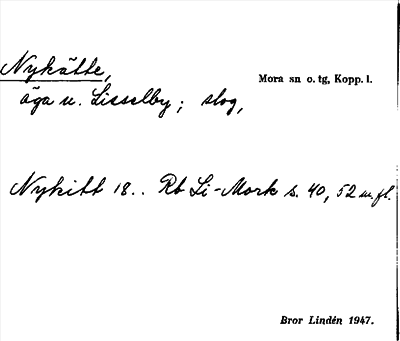 Nykätte,
Mora sn o. tg, Kopp. l.
äga u. Lisselby; slog,
Nykitt 18.. Rb Li-Mork s. 40, 52 m.fl.
Bror Lindén 1947.